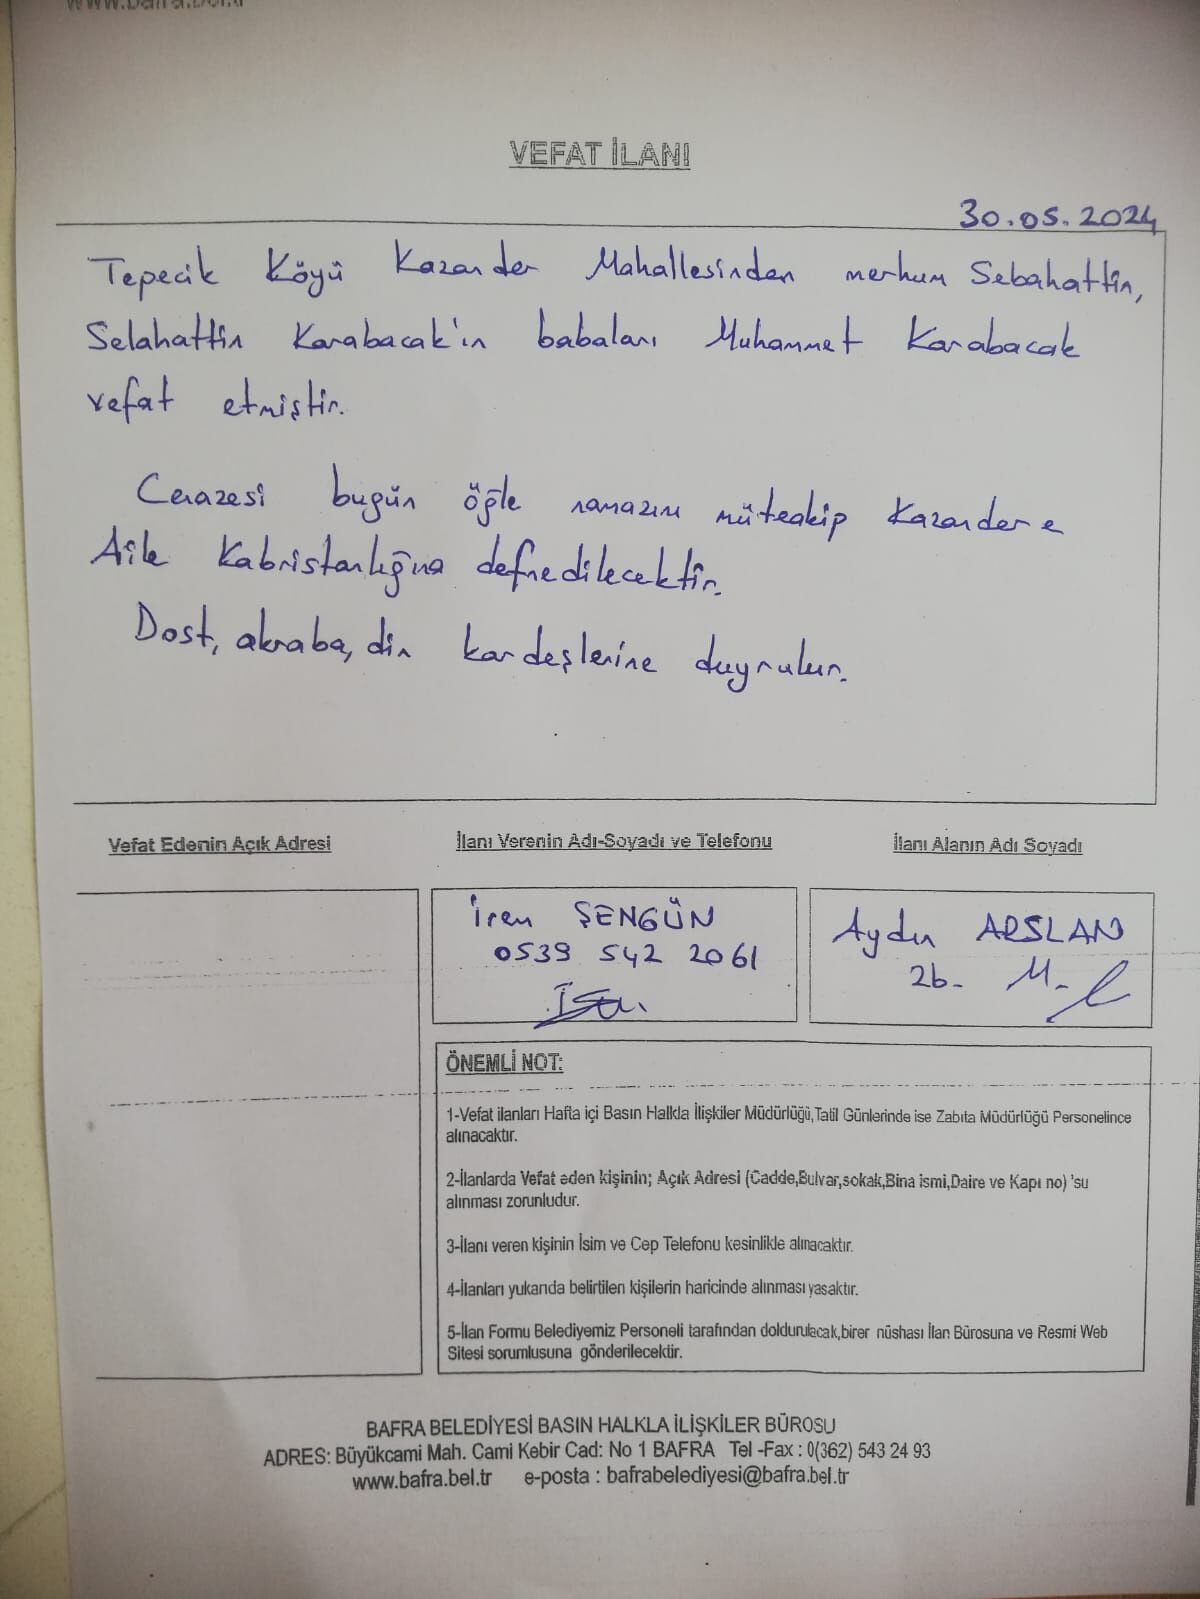 www.bafra.bel.tr
VEFAT İLANI
30.05.2024
Tepecik Köyü Kazander Mahallesinden merhum Sebahattin,
Selahattin Karabacak'ın babaları Muhammet Karabacak
vefat etmiştir.
Cenazesi bugün öğle namazını müteakip Kazandere
Aile Kabristanlığına defnedilecektir.
Dost, akraba, din kardeşlerine duyrulur.
Vefat Edenin Açık Adresi
İlanı Verenin Adı-Soyadı ve Telefonu
İlanı Alanın Adı Soyadı
İren ŞENGÜN
0539 542 2061
Aydın ARSLAN
Zb. M.
ÖNEMLİ NOT:
1-Vefat ilanları Hafta içi Basın Halkla İlişkiler Müdürlüğü,Tatil Günlerinde ise Zabıta Müdürlüğü Personelince
alınacaktır.
2-İlanlarda Vefat eden kişinin; Açık Adresi (Cadde,Bulvar,sokak,Bina ismi,Daire ve Kapı no) 'su
alınması zorunludur.
3-İlanı veren kişinin İsim ve Cep Telefonu kesinlikle alınacaktır.
4-İlanları yukarıda belirtilen kişilerin haricinde alınması yasaktır.
5-İlan Formu Belediyemiz Personeli tarafından doldurulacak,birer nüshası İlan Bürosuna ve Resmi Web
Sitesi sorumlusuna gönderilecektir.
BAFRA BELEDİYESİ BASIN HALKLA İLİŞKİLER BÜROSU
ADRES: Büyükcami Mah. Cami Kebir Cad: No 1 BAFRA Tel -Fax : 0(362) 543 24 93
www.bafra.bel.tr e-posta : bafrabelediyesi@bafra.bel.tr